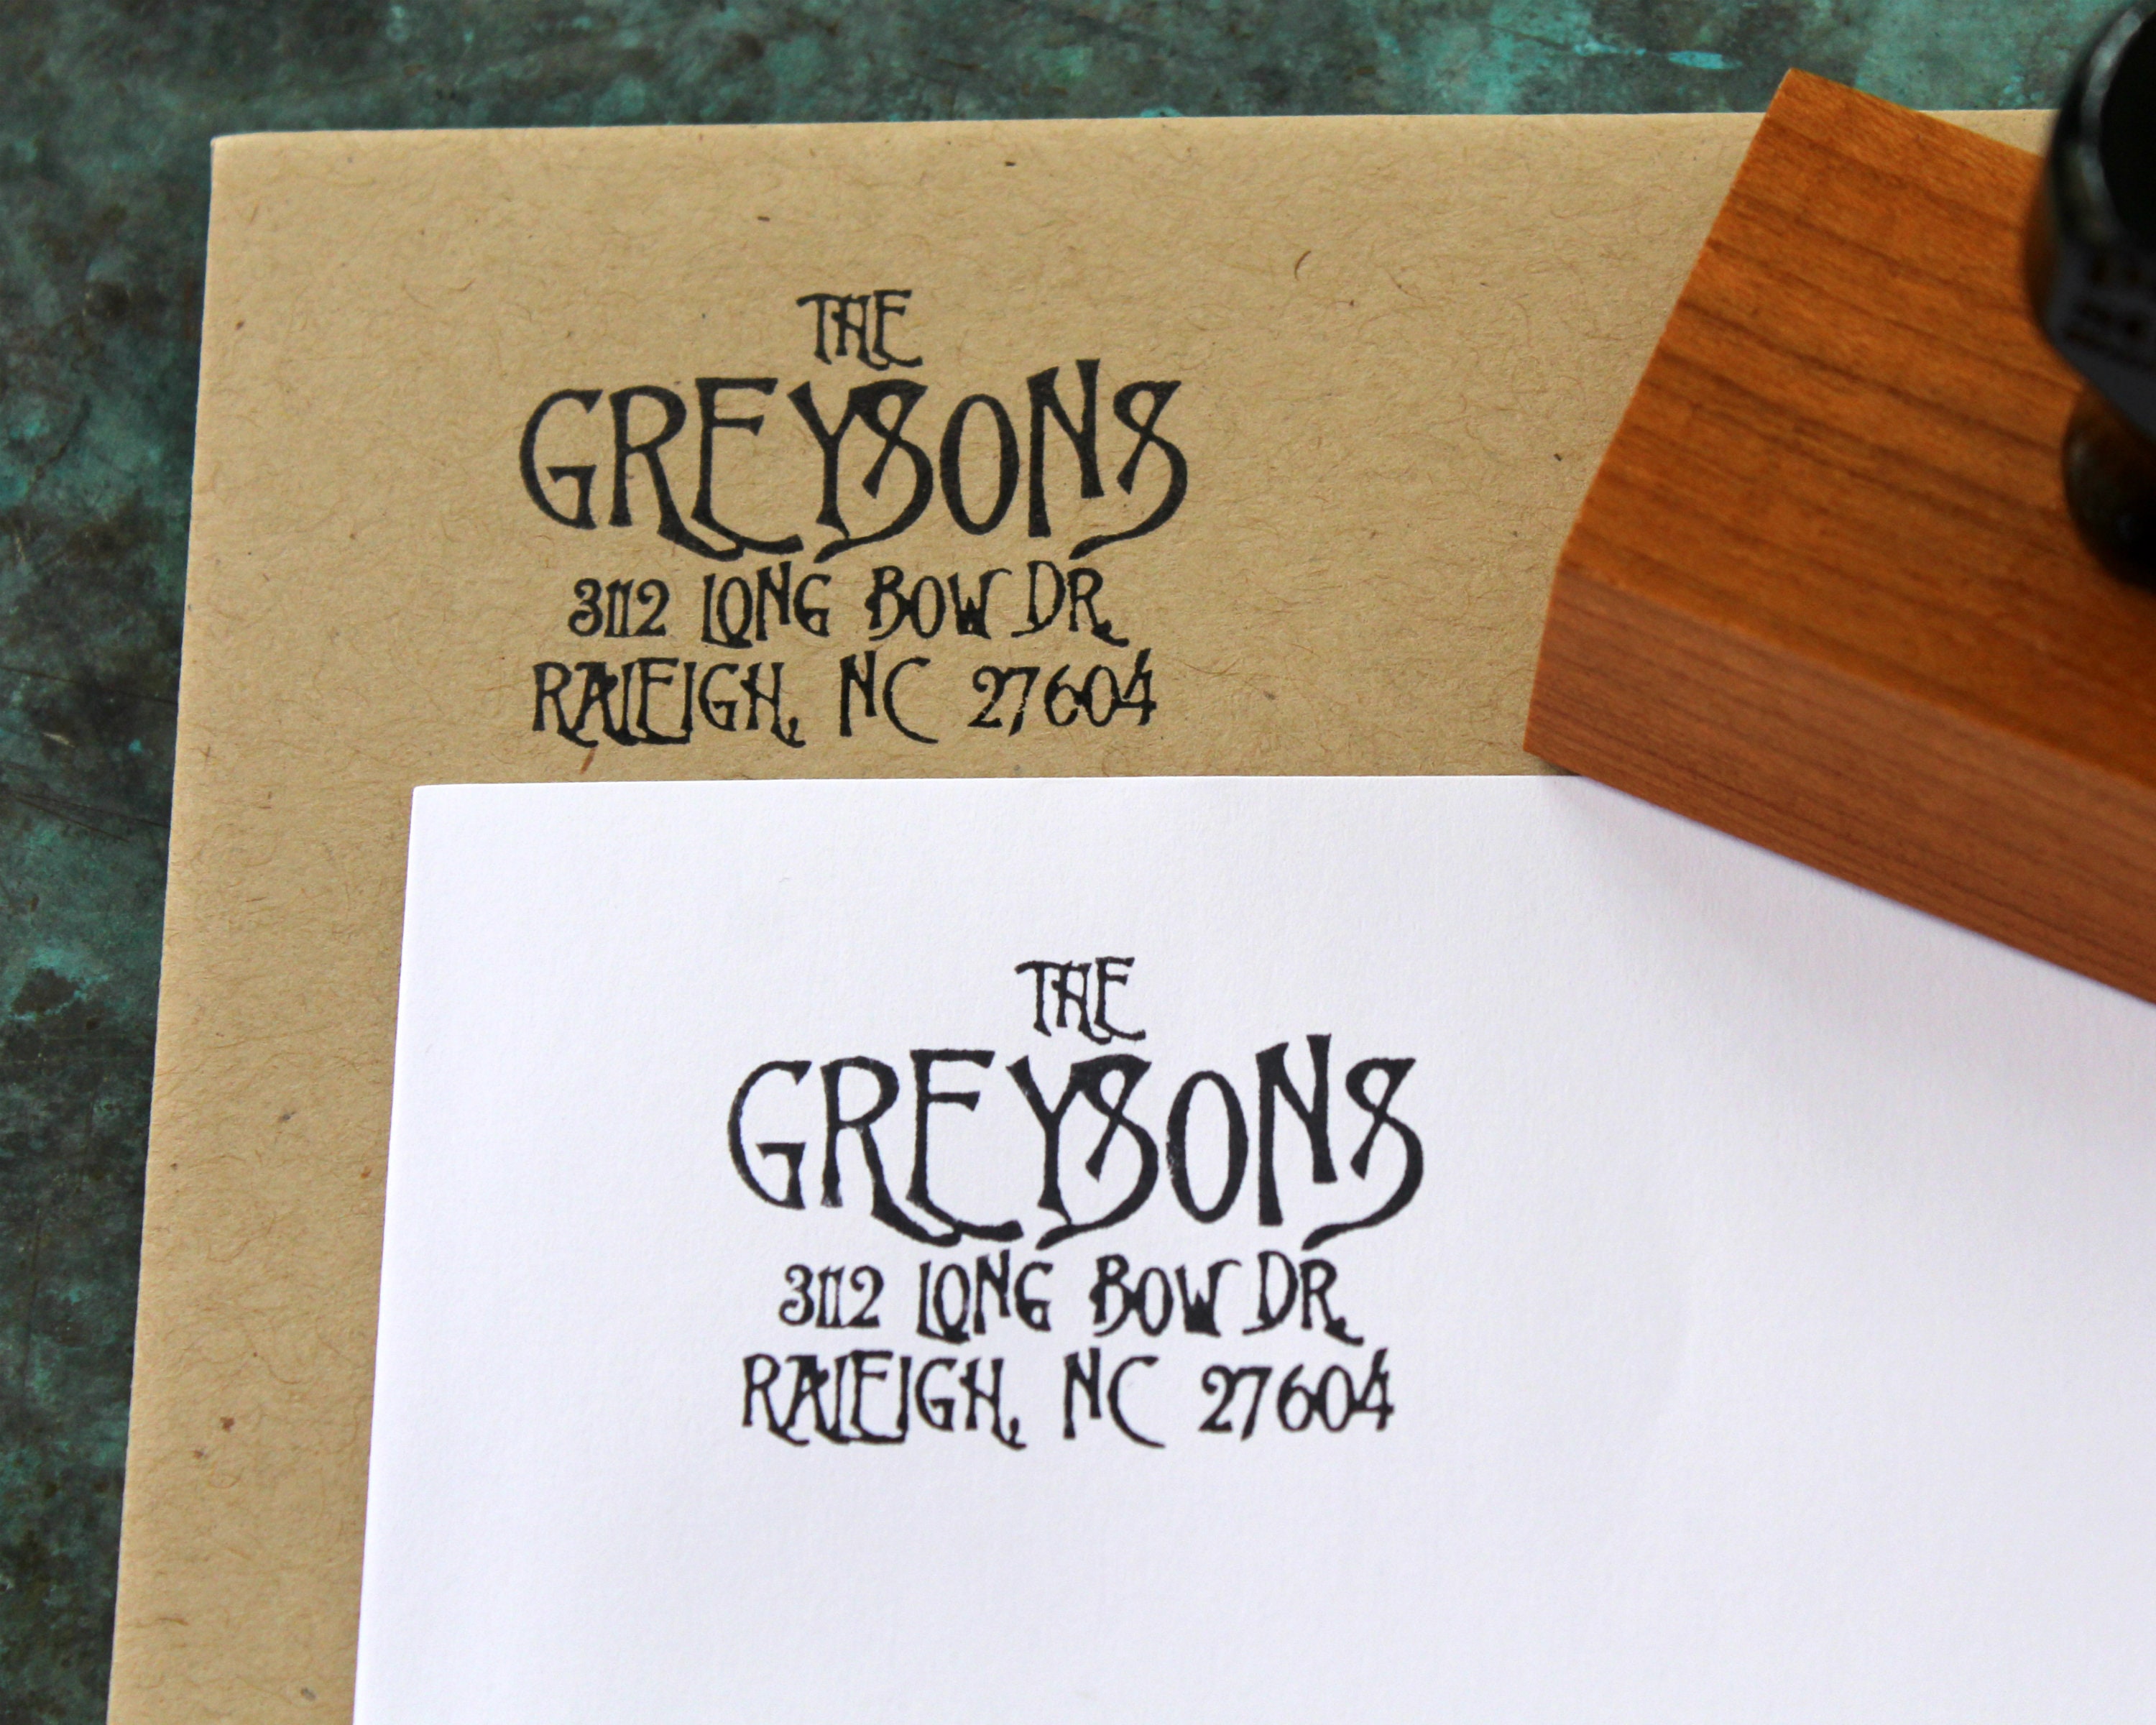 THE
GREYSONS
3112 LONG BOW DR.
RALEIGH, NC 27604
THE
GREYSONS
3112 LONG BOW DR.
RALEIGH, NC 27604